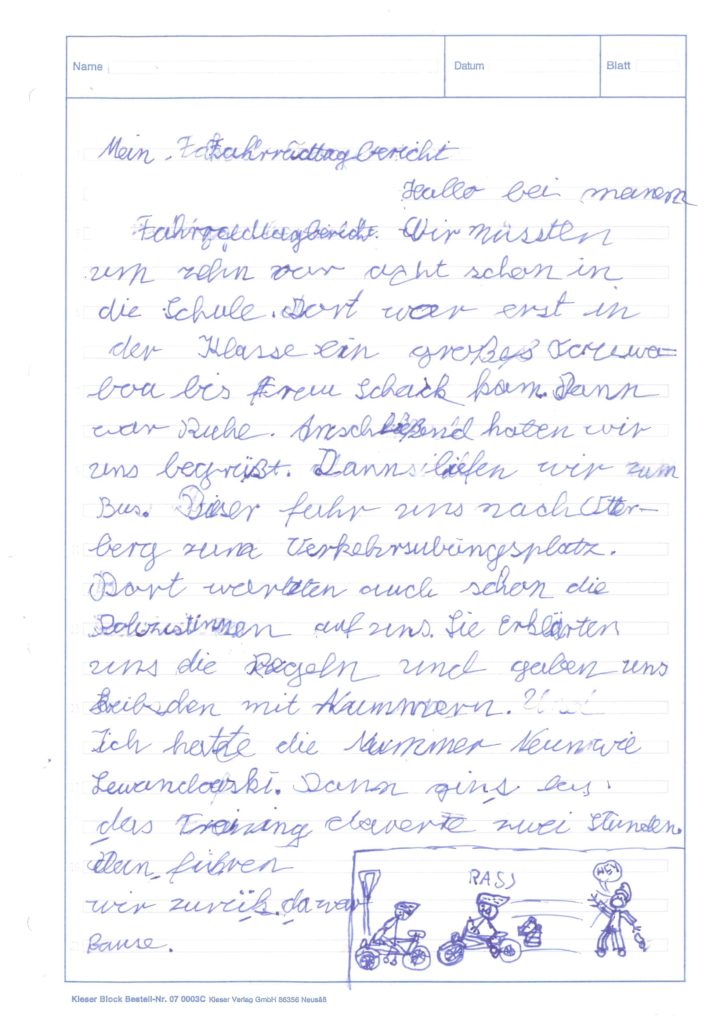 Name
Datum
Blatt
Mein Fahrradtagbericht
Hallo bei meinem
Fahrradtagbericht. Wir müssten
um zehn vor acht schon in
die Schule. Dort war erst in
der Klasse ein großes
bis Frau Schack kam. Dann
war Ruhe. Anschließend haten wir
uns begrüßt. Dann liefen wir zum
Bus. Dieser fuhr uns nach Otter-
berg zum Verkehrsübungsplatz.
Dort warteten auch schon die
Polizistinnen auf uns. Sie Erklärten
uns die Regeln und gaben uns
mit Nummern.
Ich hatte die Nummer Neun wie
Lewandowski. Dann gings los.
das Training dauerte zwei Stunden.
führen
wir zurük. da war
Bause.
HEY
Kieser Block Bestell-Nr. 07 0003C Kieser Verlag GmbH 86356 Neusäß